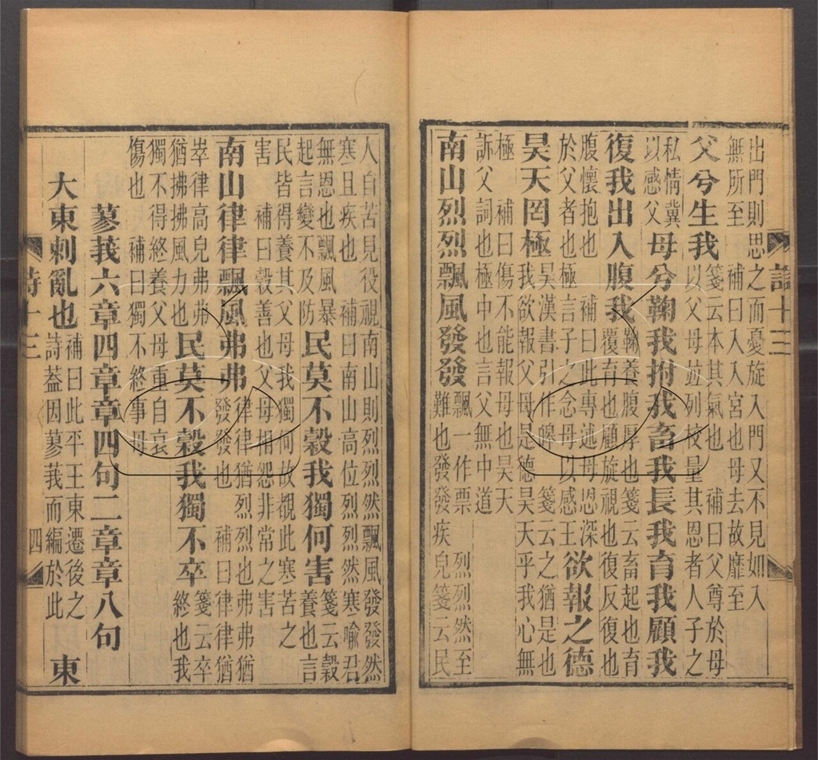 出門則思之而憂旋入門又不見如入
無所至 補曰入入宮也母去故靡至
父兮生我 箋云本其氣也 補曰父尊於母
私情冀以感父 以父母並列校量其恩者人子之
母兮鞠我拊我畜我長我育我顧我
復我出入腹我 鞠養腹厚也箋云畜起也育
覆育也顧旋視也復反復也
腹懷抱也 補曰此專述母恩深
於父者也極言子之念母以感王
欲報之德
昊天罔極 昊漢書引作皞 箋云之猶是也
我欲報父母是德昊天乎我心無
極 補曰傷不能報母也昊天
訴父詞也極中也言父無中道
南山烈烈飄風發發 飄一作票 烈烈然至
難也發發疾皃箋云民
詩十三
人自苦見役視南山則烈烈然飄風發發然
寒且疾也 補曰南山高位烈烈然寒喻君
無恩也飄風暴
起言變不及防
民莫不穀我獨何害 箋云穀
養也言
民皆得養其父母我獨何故覩此寒苦之
害 補曰穀善也父母相怨非常之害
南山律律飄風弗弗 律律猶烈烈也弗弗猶
發發也 補曰律律猶
崒律高皃弗弗
猶拂拂風力也
民莫不穀我獨不卒 箋云卒
終也我
獨不得終養父母重自哀
傷也 補曰獨不終事母
蓼莪六章四章章四句二章章八句
大東刺亂也 補曰此平王東遷後之
詩葢因蓼莪而編於此
東
詩十三
四